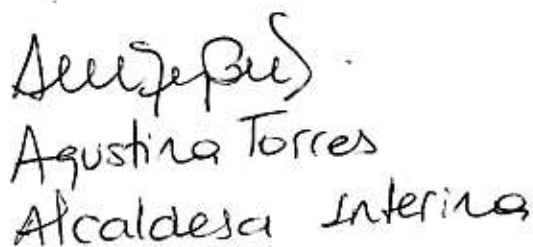 Agustina Torres
Alcaldesa Interina